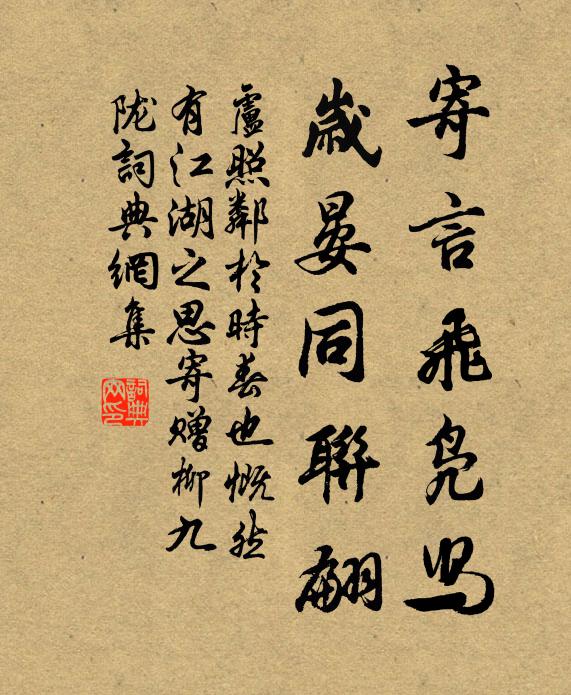 寄言飛鳧舄
歲晏同聯翩
盧照鄰於時春也慨然
有江湖之思寄贈柳九
隴詞典網集
詞典
网印